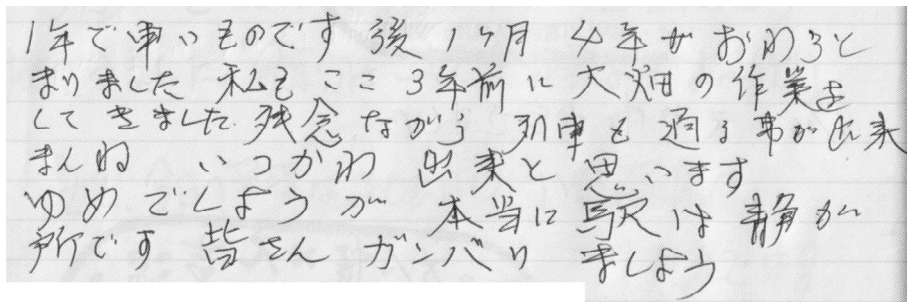 1年で車いものです 後1ヶ月 4年がおわろと
まりました 私もここ3年前に大畑の作業を
してきました 残念ながら 列車も通る事が出来
まんね いつかわ 出来と思います
ゆめでしょうが 本当に駅は静か
所です 皆さん ガンバリましょう